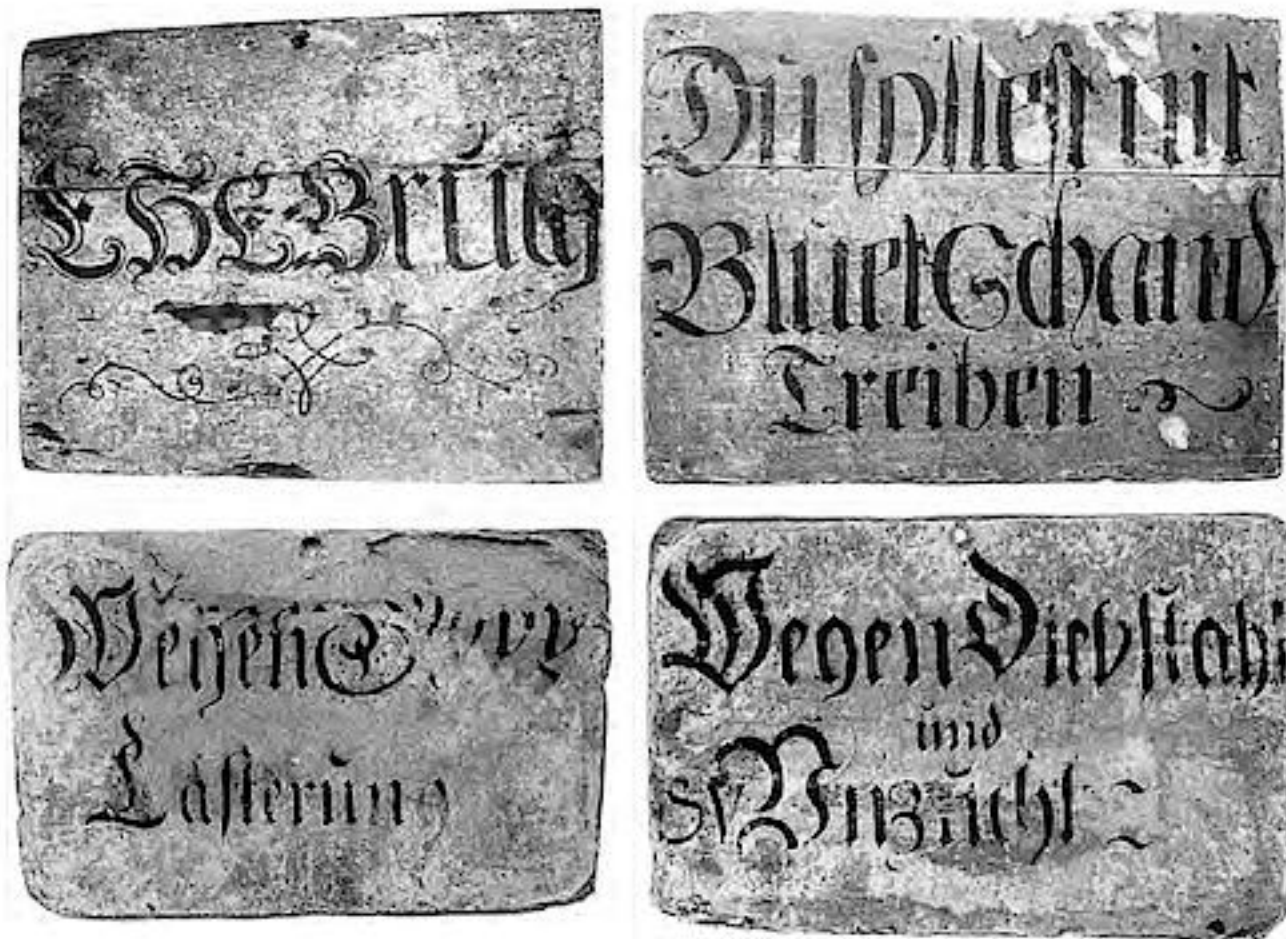 EHEBrŭch
Du sollest nit
BluetSchand
Treiben
Wegen Gott
Lästerŭng
Wegen Diebstahl
ŭnd
SV Vnzŭcht